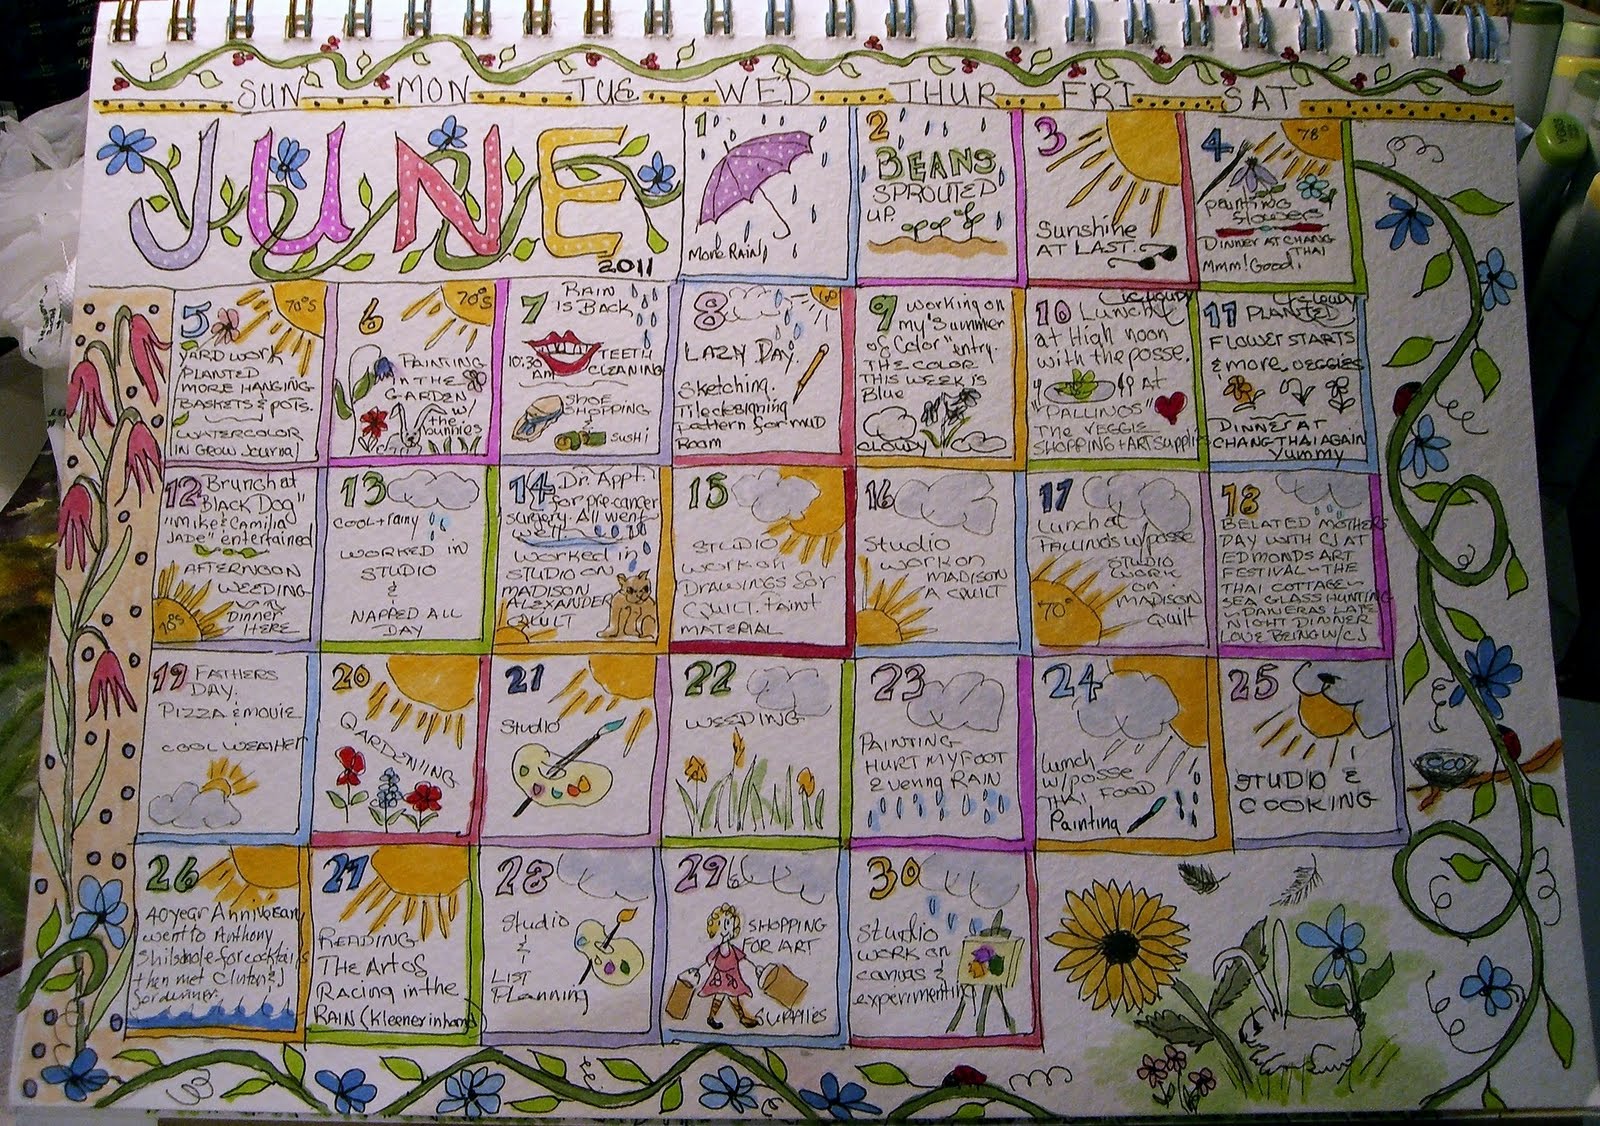 SUN MON TUE WED THUR FRI SAT
JUNE
2011
1
MORE RAIN!
2
BEANS
SPROUTED
UP.
3
Sunshine
AT LAST.
4
78°
Painting
Flowers
DINNER AT CHANG
THAI
Mmm! Good!
5
70°S
YARD WORK
PLANTED
MORE HANGING
BASKETS & POTS.
WATERCOLOR
IN GROW Journal
6
70°S
PAINTING
IN THE
GARDEN
w/
the
bunnies
7
RAIN
is BACK
10:30
am
TEETH
CLEANING
SHOE
SHOPPING
&
SUSHI
8
LAZY DAY.
Sketching.
Tile designing
Pattern for MUD
ROOM
9
working on
my "Summer
of Color" entry-
THE COLOR
THIS WEEK IS
Blue
CLOUDY
10
cloudy
Lunch
at High noon
with the posse.
At
"PALLINOS"
THE VEGGIE
SHOPPING + ART SUPPLIES
11
cloudy
PLANTED
FLOWER STARTS
& more VEGGIES
DINNER AT
CHANG THAI AGAIN
Yummy
12
Brunch at
BLACK DOG
"Mike & Camilia
JADE" entertained
AFTERNOON
WEEDING
Dinner
HERE
70's
13
COOL + rainy
WORKED IN
STUDIO
&
NAPPED ALL
DAY
14
Dr. Appt.
for pre cancer
surgery. All went
well
worked in
STUDIO ON
MADISON
ALEXANDER
QUILT
15
STUDIO
work on
Drawings for
QUILT. Paint
MATERIAL
16
Studio
work on
MADISON
A QUILT
17
Lunch at
PALLINOS w/posse
STUDIO
WORK
ON
MADISON
Quilt
70°
18
BELATED MOTHERS
DAY WITH CJ AT
EDMONDS ART
FESTIVAL - THE
THAI COTTAGE -
SEA GLASS HUNTING
- PANERAS LATE
NIGHT DINNER
LOVE BEING W/CJ
19
FATHERS
DAY.
PIZZA & MOVIE
COOL WEATHER
20
GARDENING
21
Studio
22
WEEDING
23
PAINTING
HURT MY FOOT
& Evening RAIN
24
Lunch
w/posse
THAI FOOD
Painting
25
STUDIO &
COOKING
26
40 year Anniversary
went to Anthony
s for cocktails
then met Clinton & J
for dinner.
27
READING
THE Art OF
RACING in the
RAIN
28
Studio
&
LIST
Planning
29
SHOPPING
FOR ART
SUPPLIES
30
Studio
work on
canvas &
experimenting